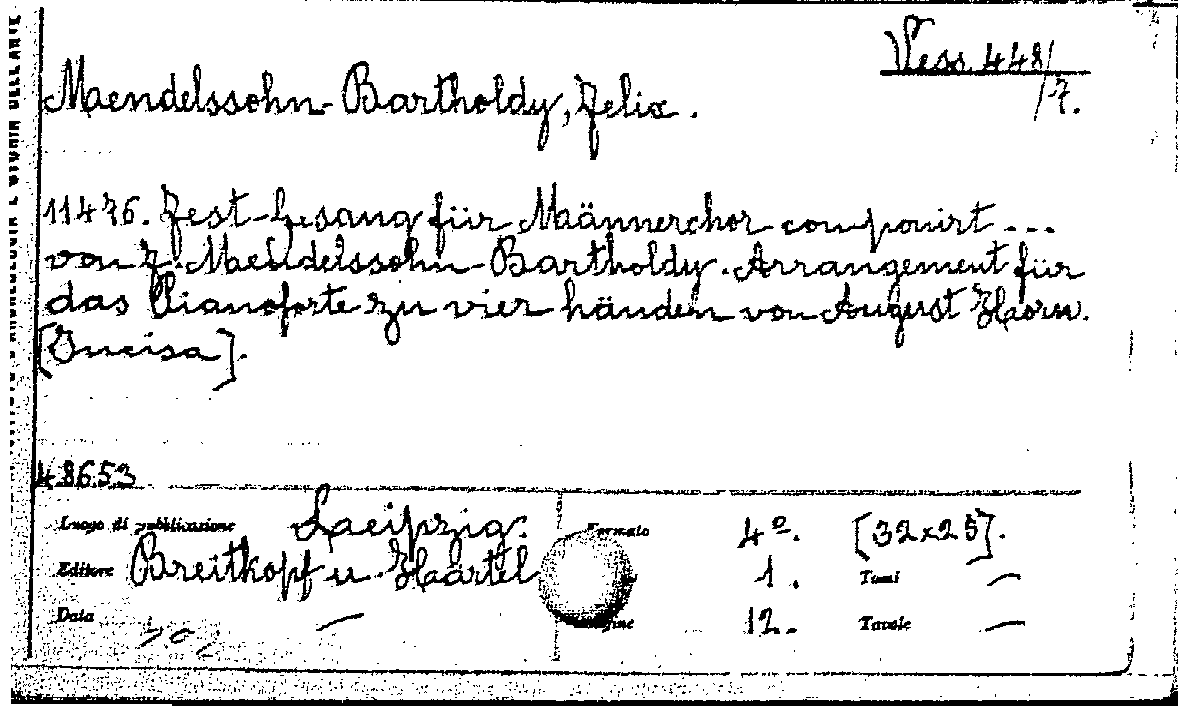 Vess. 448/
/7.
Maendelssohn-Bartholdy, Felix.
11476. Fest-Gesang für Männerchor componirt ...
von F. Mendelssohn-Bartholdy. Arrangement für
das Pianoforte zu vier händen von August Horn.
[Incisa].
48653
Luogo di pubblicazione Laeipzig: Formato 4º. [32x25].
Editore Breitkopf u. Härtel 1. Tomi —
Data — 12. Tavole —